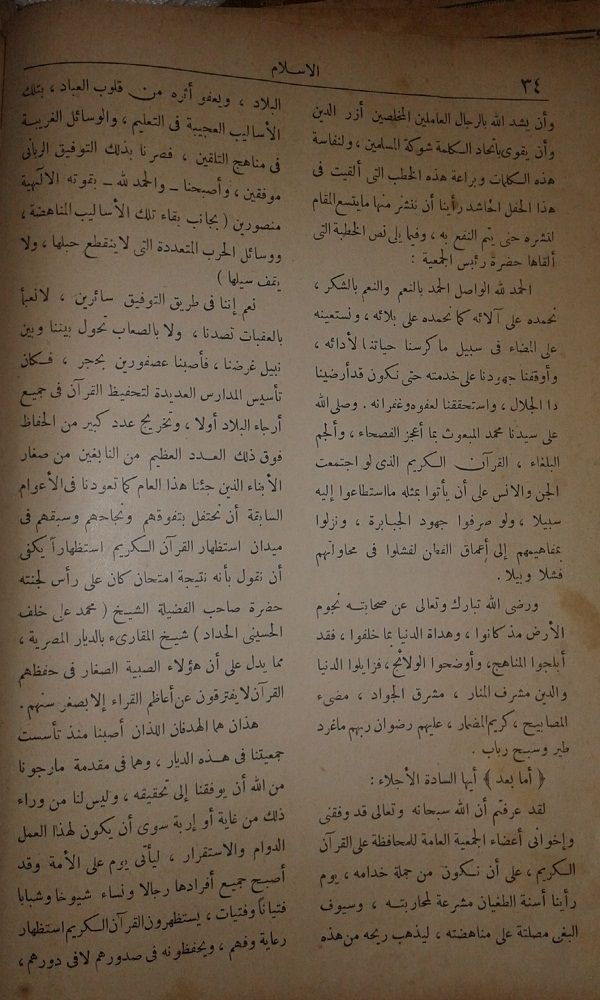 ٣٤
الاسلام
وأن يشد الله بالرجال العاملين المخلصين أزر الدين
وأن يقوى باتحاد الكلمة شوكة المسلمين ، ولنفاسة
هذه الكلمات وبراعة هذه الخطب التى ألقيت فى
هذا الحفل الحاشد رأينا أن ننشر منها ما يتسع المقام
لنشره حتى يتم النفع به ، وفيما يلى نص الخطبة التى
ألقاها حضرة رئيس الجمعية :
الحمد لله الواصل الحمد بالنعم والنعم بالشكر ،
نحمده على آلائه كما نحمده على بلائه ، ونستعينه
على المضاء فى سبيل ما كرسنا حياتنا لأدائه ،
وأوقفنا جهودنا على خدمته حتى نكون قد أرضينا
ذا الجلال ، واستحققنا لعفوه وغفرانه . وصلى الله
على سيدنا محمد المبعوث بما أعجز الفصحاء ، وألجم
البلغاء ، القرآن الكريم الذى لو اجتمعت
الجن والانس على أن يأتوا بمثله ما استطاعوا إليه
سبيلا ، ولو صرفوا جهود الجبابرة ، ونزلوا
بمفاهيمهم إلى أعماق الفطن لفشلوا فى محاولاتهم
فشلا وبيلا .
ورضى الله تبارك وتعالى عن صحابته نجوم
الأرض مذ كانوا ، وهداة الدنيا بما خلفوا ، فقد
أبلجوا المناهج ، وأوضحوا الولائج ، فزايلوا الدنيا
والدين مشرف المنار ، مشرق الجواد ، مضىء
المصابيح ، كريم المضمار ، عليهم رضوان ربهم ما غرد
طير وسبح رباب .
﴿ أما بعد ﴾ أيها السادة الأجلاء :
لقد عرفتم أن الله سبحانه وتعالى قد وفقنى
وإخوانى أعضاء الجمعية العامة للمحافظة على القرآن
الكريم ، على أن نكون من جملة خدامه ، يوم
رأينا أسنة الطغيان مشرعة لمحاربته ، وسيوف
البغى مصلتة على مناهضته ، ليذهب ريحه من هذه
البلاد ، ويعفو أثره من قلوب العباد ، بتلك
الأساليب العجيبة فى التعليم ، والوسائل الغريبة
فى مناهج التلقين ، فصرنا بذلك التوفيق الربانى
موفقين ، وأصبحنا ــ والحمد لله ــ بقوته الالهية
منصورين ( بجانب بقاء تلك الأساليب المناهضة ،
ووسائل الحرب المتعددة التى لا ينقطع حبلها ، ولا
يقف سيلها )
نعم إننا فى طريق التوفيق سائرين ، لا نعبأ
بالعقبات تصدنا ، ولا بالصعاب تحول بيننا وبين
نبيل غرضنا ، فأصبنا عصفورين بحجر ، فكان
تأسيس المدارس العديدة لتحفيظ القرآن فى جميع
أرجاء البلاد أولا ، وتخريج عدد كبير من الحفاظ
فوق ذلك العدد العظيم من النابغين من صغار
الأبناء الذين جئنا هذا العام كما تعودنا فى الأعوام
السابقة أن نحتفل بتفوقهم ونجاحهم وسبقهم فى
ميدان استظهار القرآن الكريم استظهاراً يكفى
أن نقول بأنه نتيجة امتحان كان على رأس لجنته
حضرة صاحب الفضيلة الشيخ ( محمد على خلف
الحسينى الحداد ) شيخ المقارىء بالديار المصرية ،
مما يدل على أن هؤلاء الصبية الصغار فى حفظهم
القرآن لا يفترقون عن أعاظم القراء إلا بصغر سنهم .
هذان هما الهدفان اللذان أصبنا منذ تأسست
جمعيتنا فى هذه الديار ، وهما فى مقدمة ما رجونا
من الله أن يوفقنا إلى تحقيقه ، وليس لنا من وراء
ذلك من غاية أو إربة سوى أن يكون لهذا العمل
الدوام والاستقرار ، ليأتى يوم على الأمة وقد
أصبح جميع أفرادها رجالا ونساء شيوخا وشبابا
فتياناً وفتيات ، يستظهرون القرآن الكريم استظهار
رعاية وفهم ، ويحفظونه فى صدورهم لا فى دورهم ،